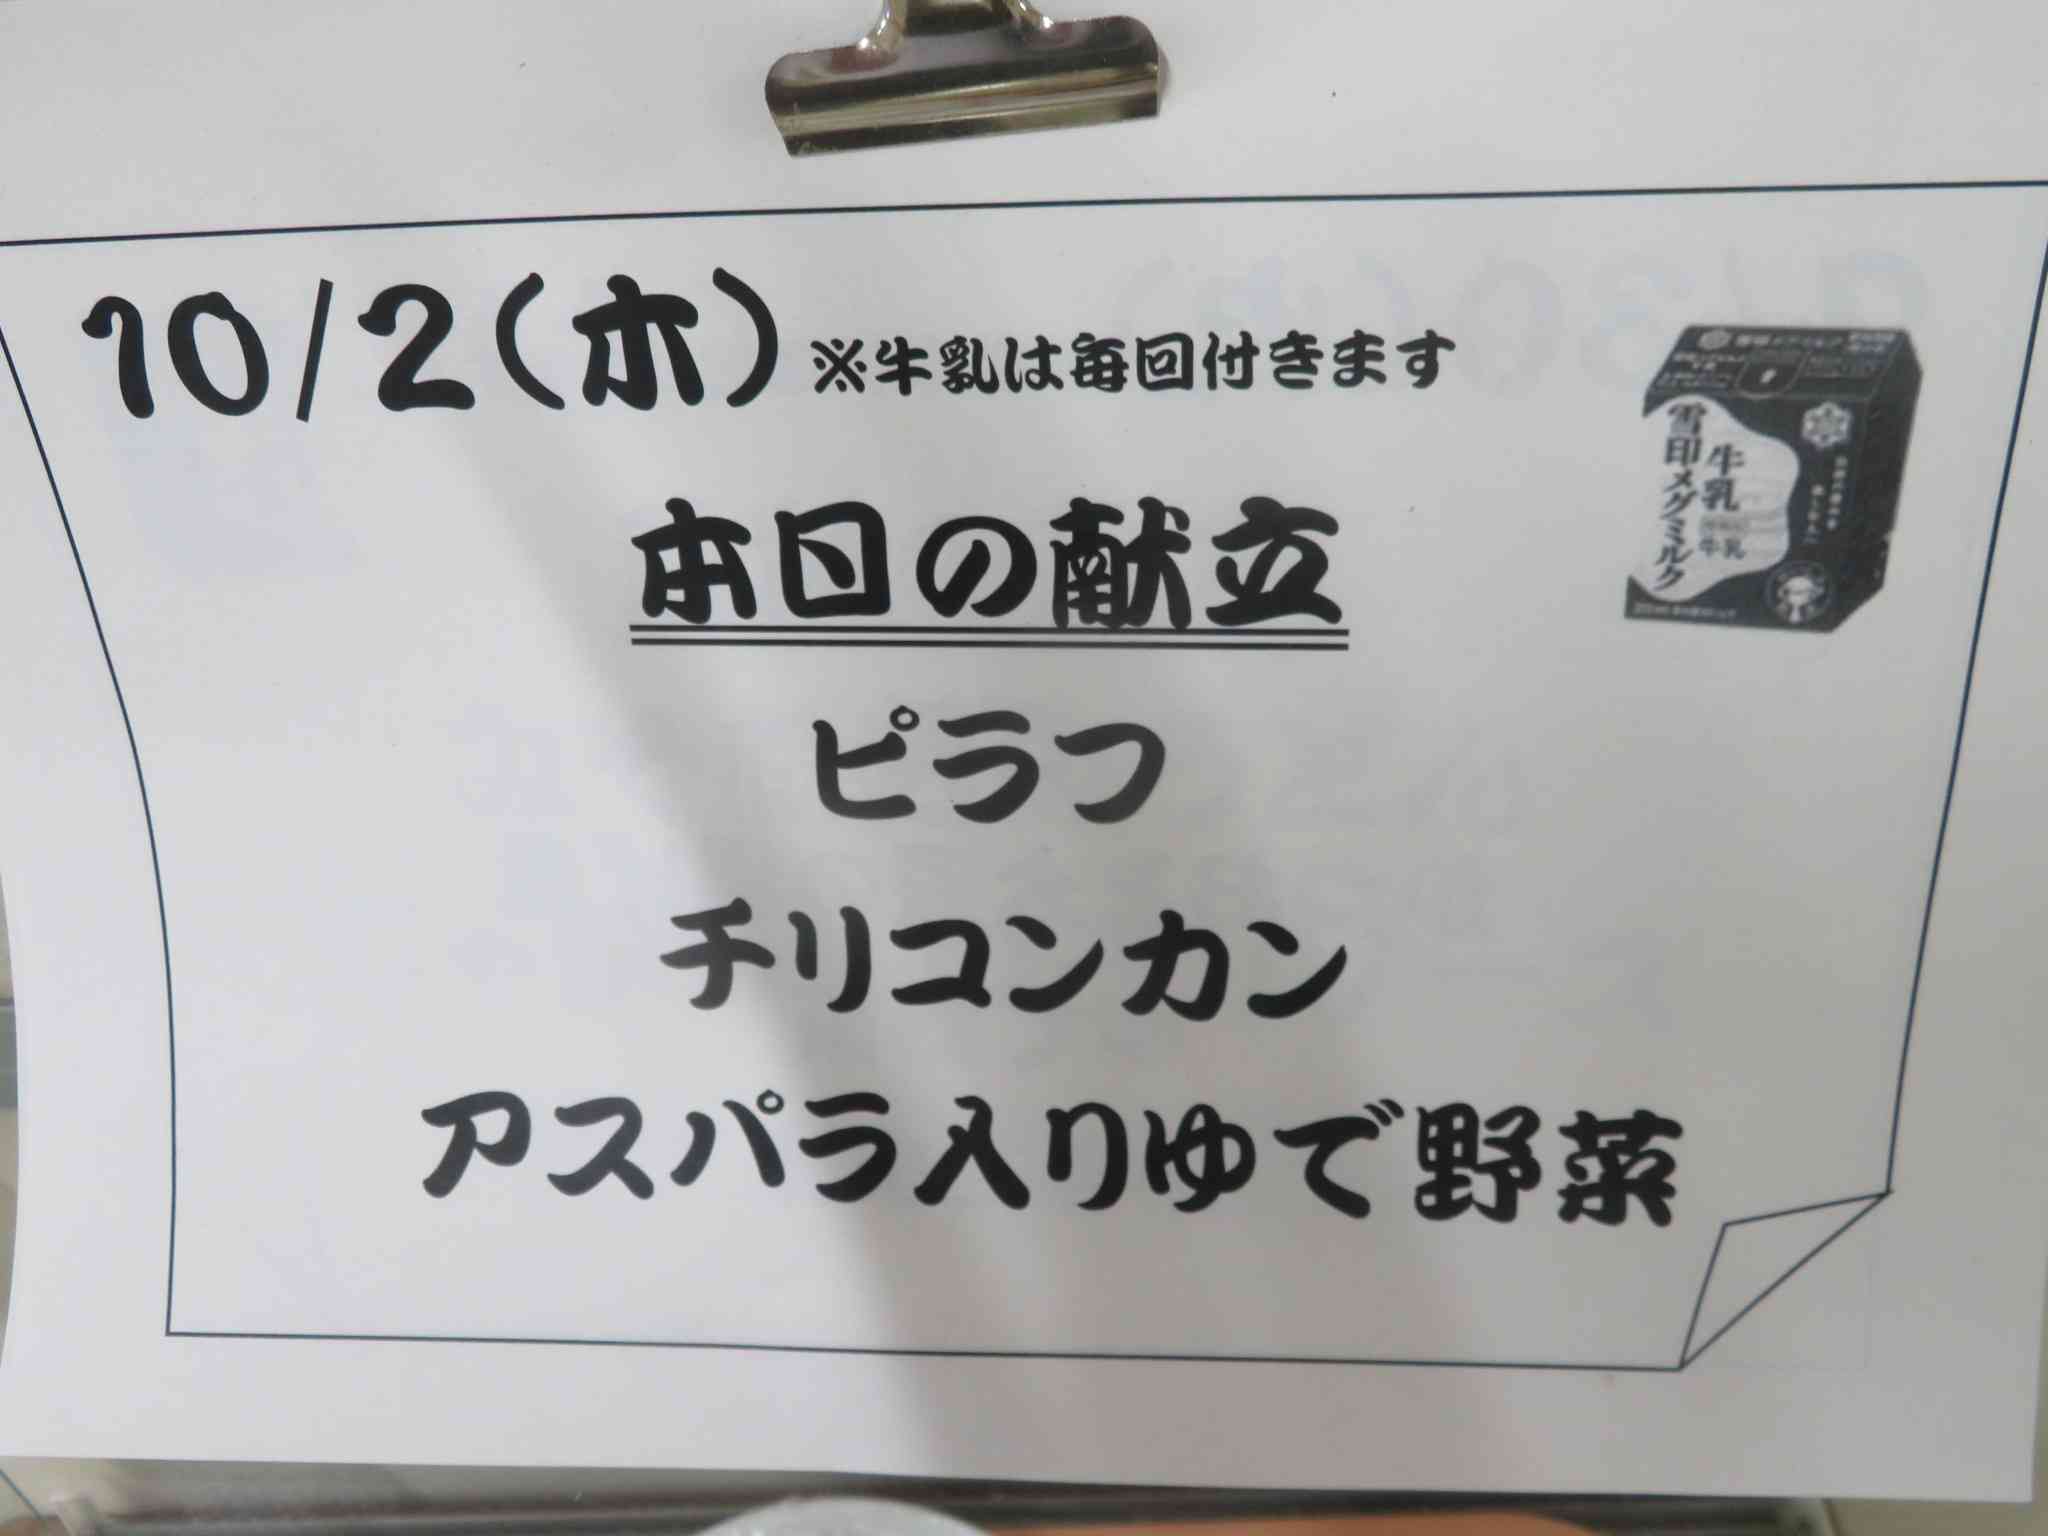 10/2(木) ※牛乳は毎回付きます
本日の献立
ピラフ
チリコンカン
アスパラ入りゆで野菜
雪印メグミルク
牛乳